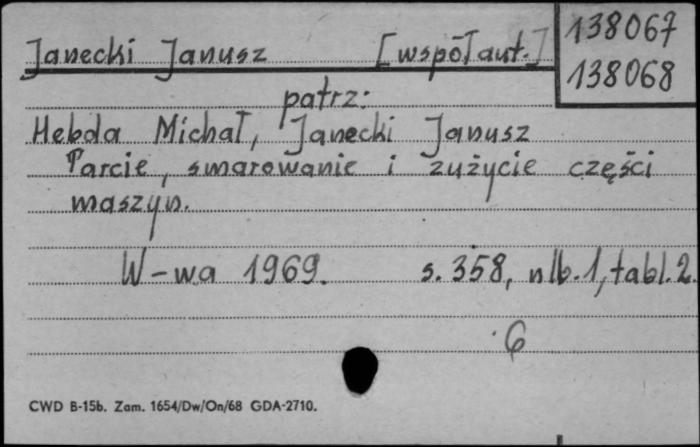 Janecki Janusz [współaut.]
138067
138068
patrz:
Hebda Michał, Janecki Janusz
Tarcie, smarowanie i zużycie części
maszyn.
W-wa 1969. s. 358, nlb. 1, tabl. 2.
6
CWD B-15b. Zam. 1654/Dw/On/68 GDA-2710.